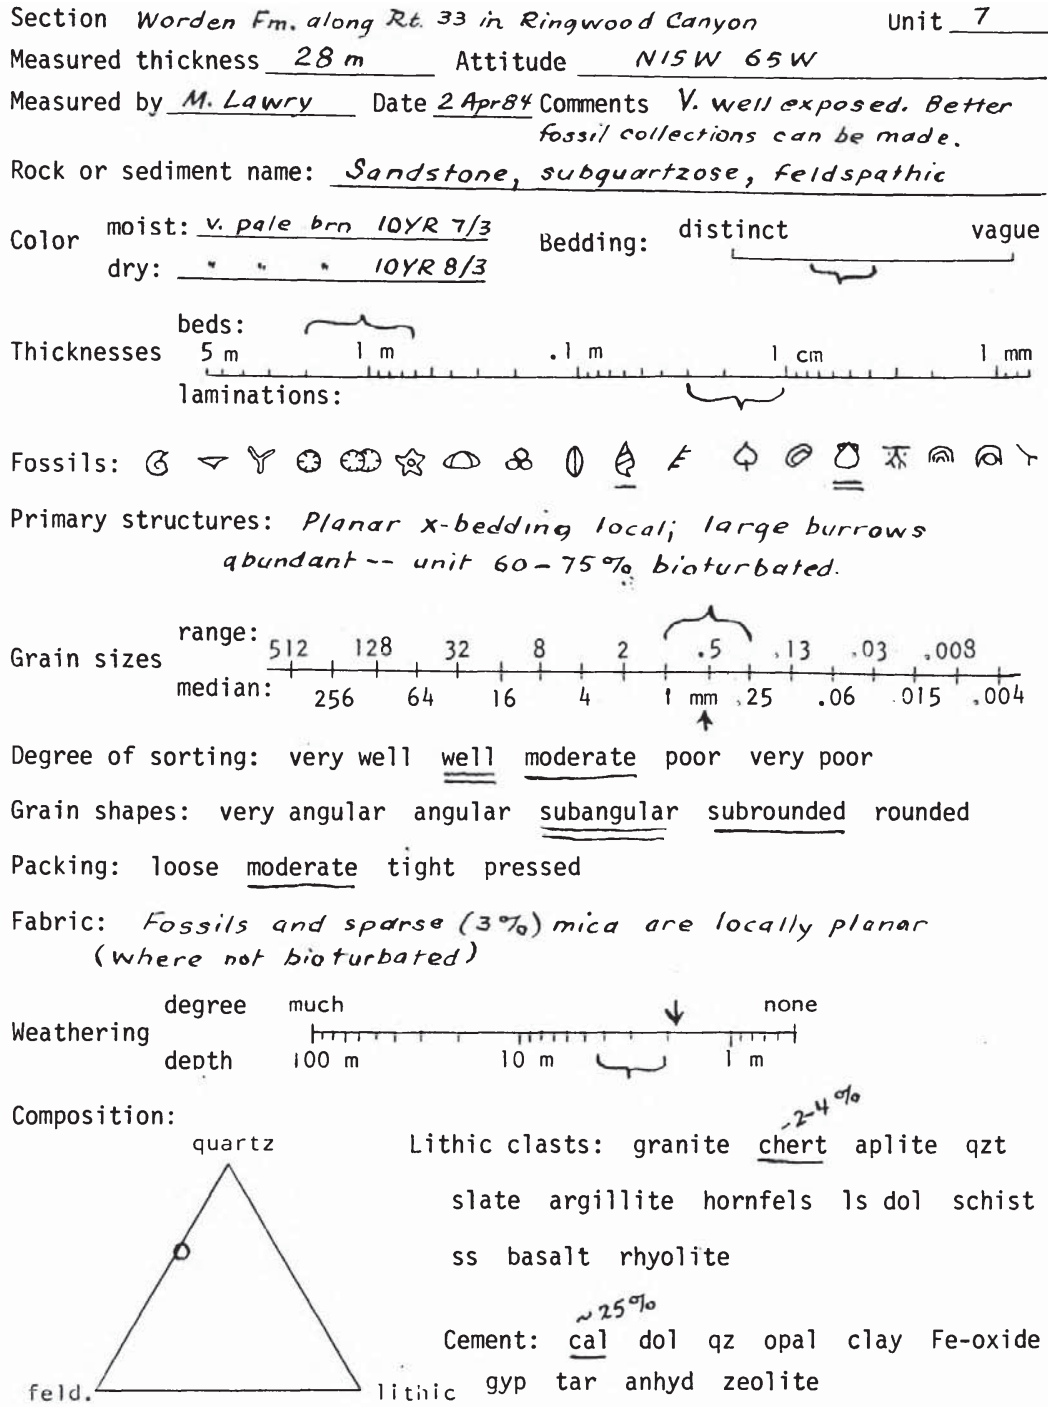 Section Worden Fm. along Rt. 33 in Ringwood Canyon Unit 7
Measured thickness 28 m Attitude N15W 65W
Measured by M. Lawry Date 2 Apr 84 Comments V. well exposed. Better
fossil collections can be made.
Rock or sediment name: Sandstone, subquartzose, feldspathic
Color moist: v. pale brn 10YR 7/3 Bedding: distinct vague
dry: " " " 10YR 8/3
beds:
Thicknesses 5 m 1 m .1 m 1 cm 1 mm
laminations:
Fossils:
Primary structures: Planar x-bedding local; large burrows
abundant -- unit 60-75% bioturbated.
range: 512 128 32 8 2 .5 .13 .03 .008
Grain sizes
median: 256 64 16 4 1 mm .25 .06 .015 .004
Degree of sorting: very well well moderate poor very poor
Grain shapes: very angular angular subangular subrounded rounded
Packing: loose moderate tight pressed
Fabric: Fossils and sparse (3%) mica are locally planar
(where not bioturbated)
degree much none
Weathering
depth 100 m 10 m 1 m
Composition: ~2-4%
quartz Lithic clasts: granite chert aplite qzt
slate argillite hornfels ls dol schist
ss basalt rhyolite
~25%
Cement: cal dol qz opal clay Fe-oxide
feld. lithic gyp tar anhyd zeolite